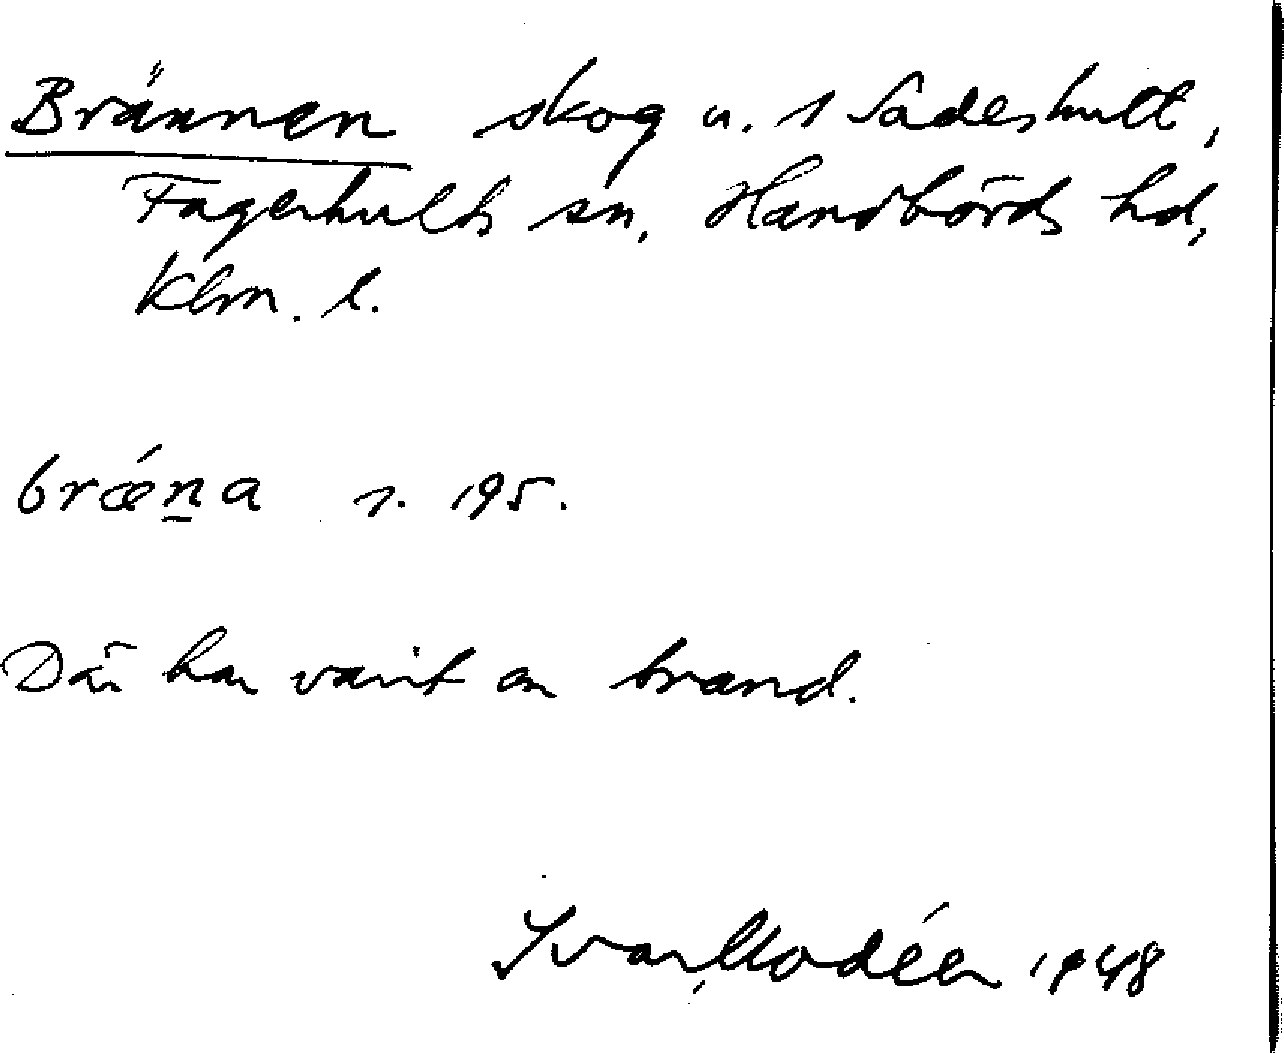 Brännen skog u. 1 Sadeshult,
Fagerhults sn, Handbörds hd,
Klm. l.
brǽn̲a s. 195.
Där har varit en brand.
Ivar Modéer 1948